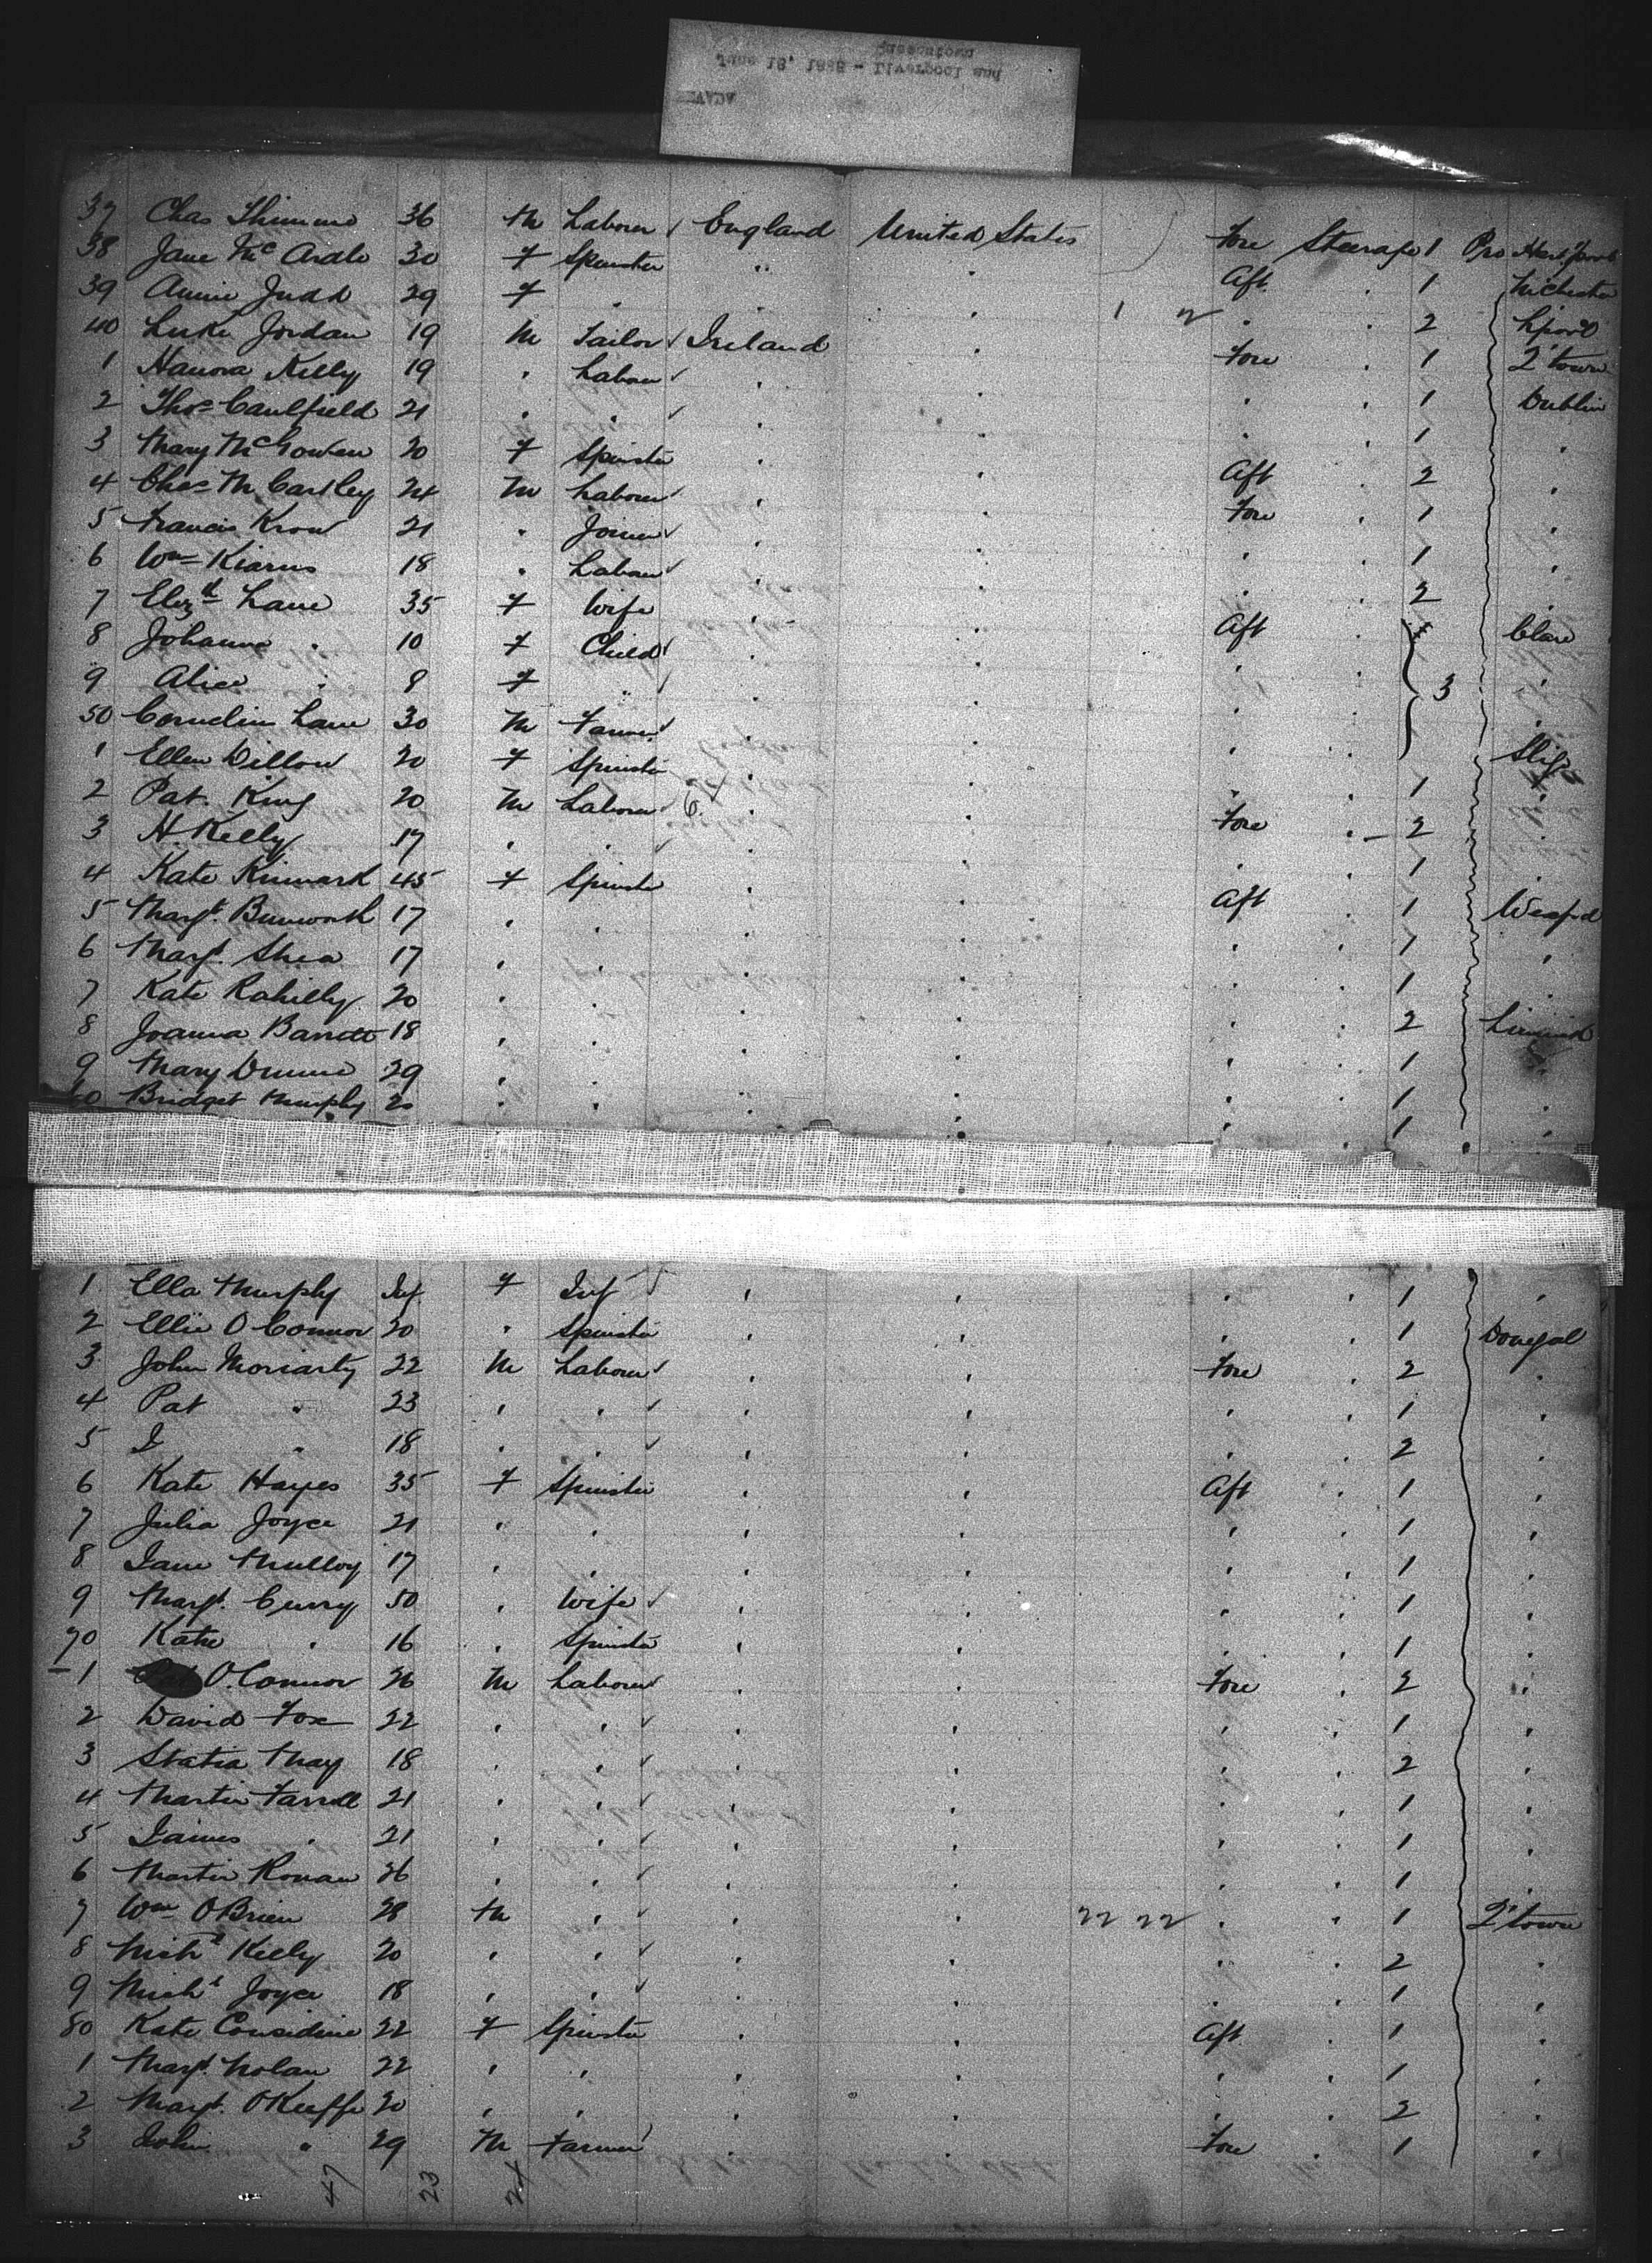 June 18, 1888 - Liverpool and
Queenstown
37 Chas 36 m Labourer England United States Fore Steerage 1 Pro
38 Jane McArdle 30 f Spinster " " Aft . 1
39 Annie Judd 29 f . . . 1 2 . . 2 Lpool
40 Luke Jordan 19 M Tailor Ireland . Fore . 1 Q'town
1 Hanora Kelly 19 . Labour . . . . 1 Dublin
2 Thos Caulfield 21 . . . . . . 1 .
3 Mary McGowen 20 f Spinster . . Aft . 2 .
4 Chas McCartley 24 M Labour . . Fore . 1 .
5 Francis Krow 21 . Joiner . . . . 1 .
6 Wm Kiarns 18 . Labour . . . . 2 .
7 Elizth Lane 35 f Wife . . Aft . Clare
8 Johanna . 10 f Child . . . . 3 .
9 Alice . 8 f " . . . . .
50 Cornelius Lane 30 M Farmer . . . . Sligo
1 Ellen Dillon 20 f Spinster . . . . 1 .
2 Pat. King 20 M Labourer . . Fore . 2 .
3 H. Kelly 17 . . . . . . 1 .
4 Kate 45 f Spinster . . Aft . 1 Wexford
5 Margt. 17 . . . . . . 1 .
6 Margt. Shea 17 . . . . . . 1 .
7 Kate Rahilly 20 . . . . . . 2 Limerick
8 Joanna Barrett 18 . . . . . . 1 .
9 Mary Dunne 29 . . . . . . 1 .
60 Bridget Murphy 20 . . . . . . 1 .
1 Ella Murphy Inf. f Inf . . . . 1 .
2 Ellie O'Connor 20 . Spinster . . . . 1 Donegal
3 John Moriarty 22 M Labourer . . Fore . 2 .
4 Pat " 23 . . . . . . 1 .
5 J " 18 . . . . . . 2 .
6 Kate Hayes 35 f Spinster . . Aft . 1 .
7 Julia Joyce 21 . . . . . . 1 .
8 Jane Mulloy 17 . . . . . . 1 .
9 Margt. Curry 50 . Wife . . . . 1 .
70 Katie . 16 . Spinster . . . . 1 .
1 O'Connor 26 M Labourer . . Fore . 2 .
2 David Fox 22 . . . . . . 1 .
3 Statia May 18 . . . . . . 2 .
4 Martin Farrell 21 . . . . . . 1 .
5 James . 21 . . . . . . 1 .
6 Martin Ronan 26 . . . . . . 1 .
7 Wm O'Brien 28 M . . . 22 22 . . 1 Q'town
8 Michl Kielly 20 . . . . . . 2 .
9 Michl Joyce 18 . . . . . . 1 .
80 Kate Considine 22 f Spinster . . Aft . 1 .
1 Margt. Nolan 22 . . . . . . 1 .
2 Margt. O'Keeffe 20 . . . . . . 2 .
3 John " 29 M Farmer . . Fore . 1 .
47 23 24